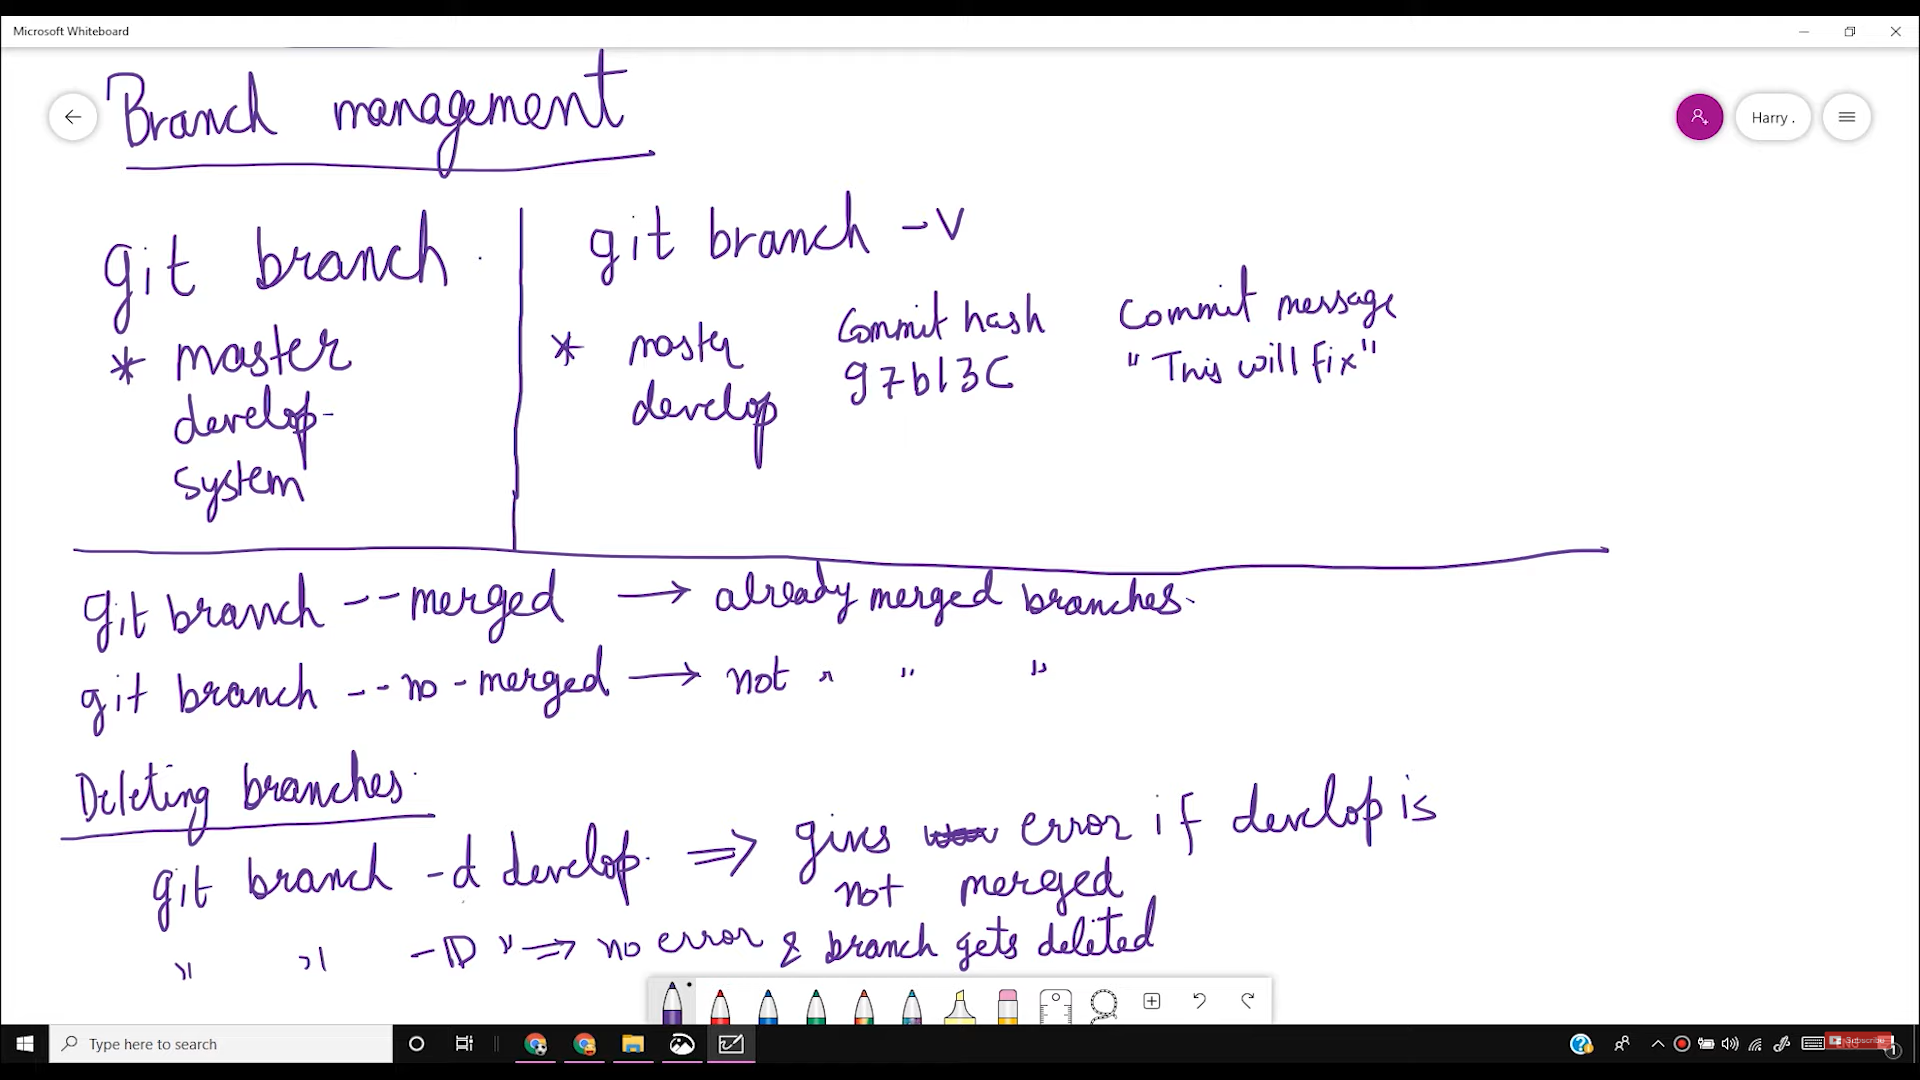 Microsoft Whiteboard
Branch management
Harry .
git branch
* master
develop
system
git branch -v
Commit hash Commit message
* master g7b13C "This will fix"
develop
git branch --merged → already merged branches.
git branch --no-merged → not " " "
Deleting branches
git branch -d develop ⇒ gives error if develop is
not merged
" " -D " ⇒ no error & branch gets deleted
Type here to search
Subscribe
1